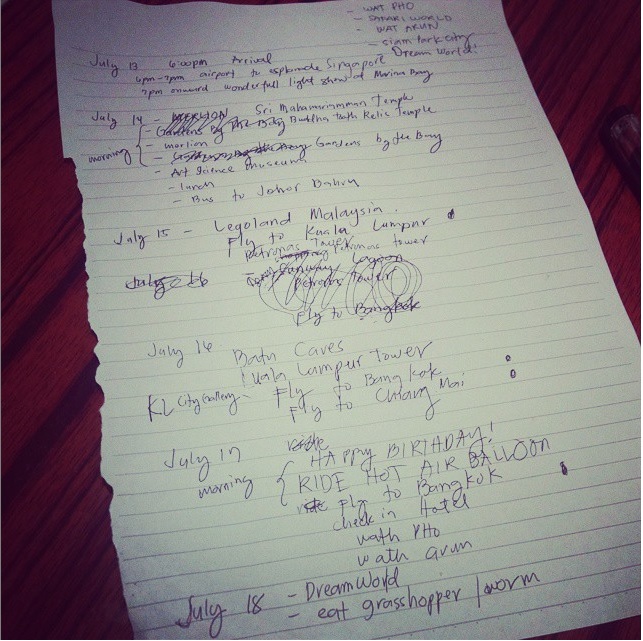 - WAT PHO
- SAFARI WORLD
- WAT ARUN
- Siam Park City
Dream World!
July 13 6:00pm Arrival Singapore
6pm-7pm airport to esplanade
7pm onward wonderfull light show at Marina Bay
July 14 - MERLION Sri Mahamariamman Temple
morning
- Gardens By the Bay Buddha tooth Relic Temple
- marlion
- Gardens by the Bay
- Art Science museum
- lunch
- Bus to Johor Bahru
July 15 - Legoland Malaysia.
Fly to Kuala Lumpur
Petronas Tower
Petronas tower
July 16 Sunway Lagoon
Petronas Tower
Fly to Bangkok
July 16 Batu Caves
Kuala Lumpur Tower
KL City Gallery - Fly to Bangkok
Fly to Chiang Mai
July 17
morning
HAPPY BIRTHDAY!
RIDE HOT AIR BALLOON
Fly to Bangkok
check in Hotel
wath PHO
wath arun
July 18 - DreamWorld
- eat grasshopper / worm